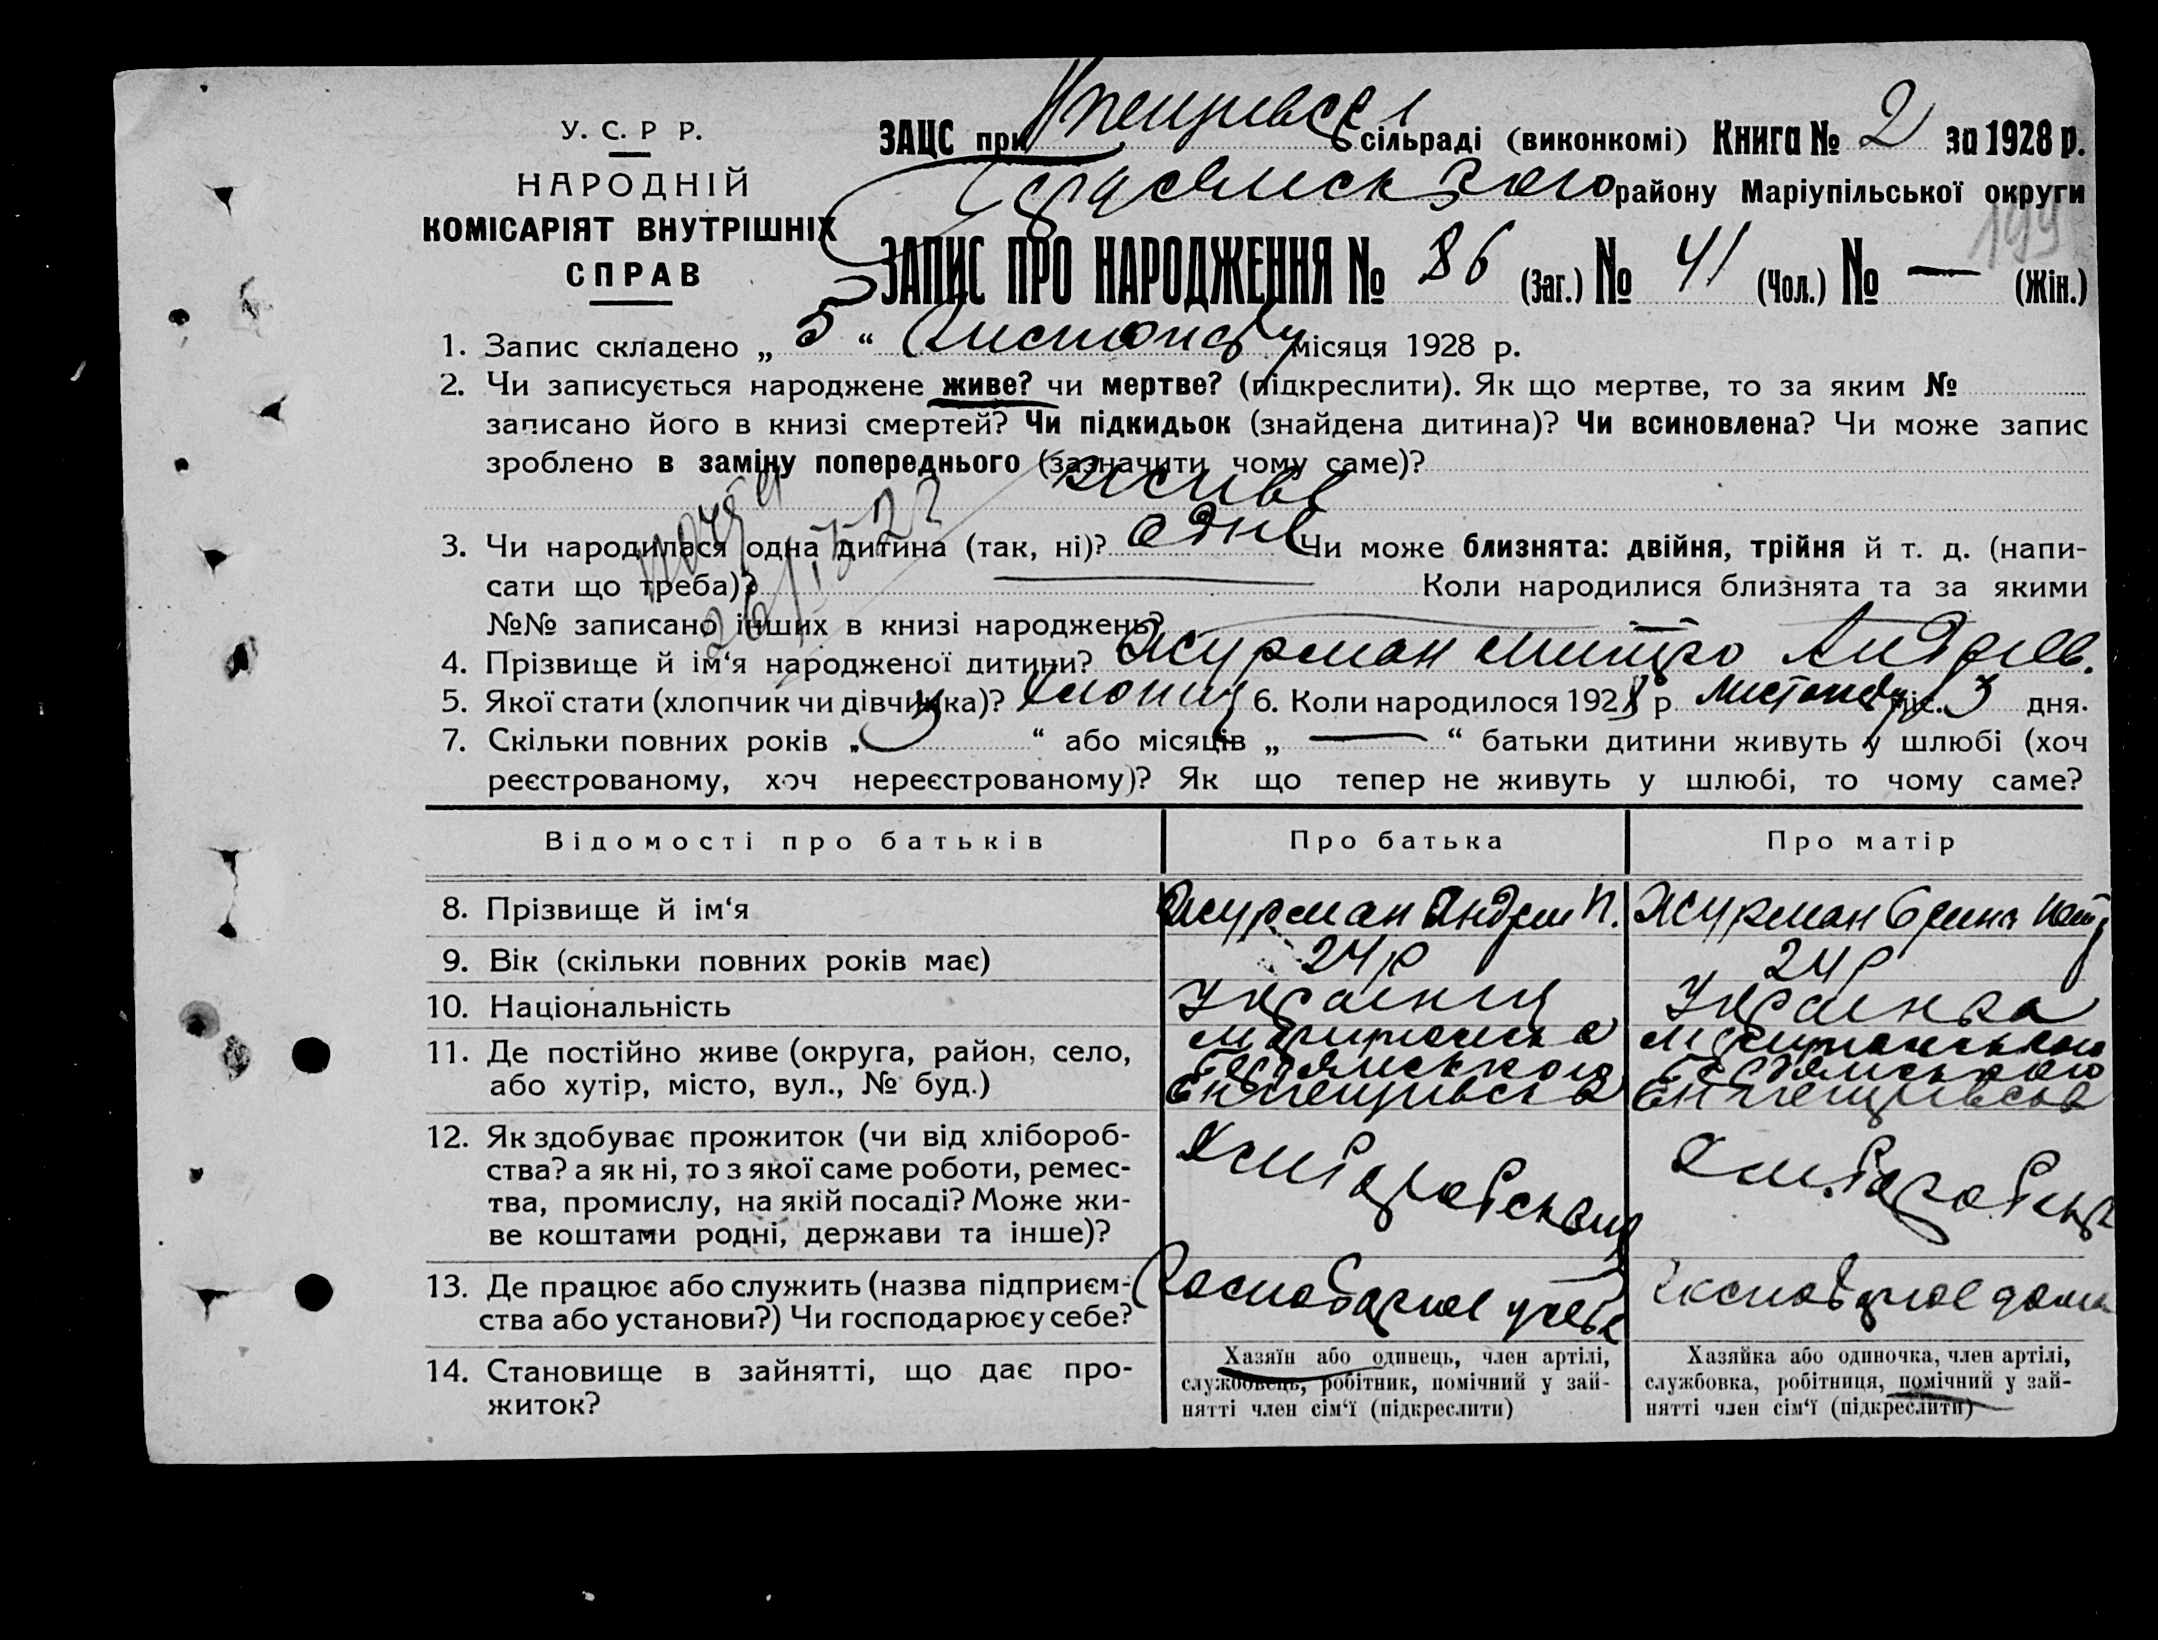 У. С. Р Р.
НАРОДНІЙ
КОМІСАРІЯТ ВНУТРІШНІХ
СПРАВ
ЗАЦС при сільраді (виконкомі) Книга № 2 за 1928 р.
району Маріупільської округи
199
ЗАПИС ПРО НАРОДЖЕННЯ № 86 (Заг.) № 41 (Чол.) № — (Жін.)
1. Запис складено „ 5 “ Листопаду місяця 1928 р.
2. Чи записується народжене живе? чи мертве? (підкреслити). Як що мертве, то за яким №
записано його в книзі смертей? Чи підкидьок (знайдена дитина)? Чи всиновлена? Чи може запис
зроблено в заміну попереднього (зазначити чому саме)?
живе
3. Чи народилася одна дитина (так, ні)? одне Чи може близнята: двійня, трійня й т. д. (напи-
сати що треба)? — Коли народилися близнята та за якими
№№ записано інших в книзі народжень? —
4. Прізвище й ім‘я народженої дитини? Журман Митро Андрієв.
5. Якої стати (хлопчик чи дівчинка)? хлопиц 6. Коли народилося 1928 р. листопаду міс. 3 дня.
7. Скільки повних років „ “ або місяців „ — “ батьки дитини живуть у шлюбі (хоч
реєстрованому, хоч нереєстрованому)? Як що тепер не живуть у шлюбі, то чому саме?
Відомості про батьків Про батька Про матір
8. Прізвище й ім‘я Журман Андрій П. Журман
9. Вік (скільки повних років має) 24 р 24 р
10. Національність Українец Українка
11. Де постійно живе (округа, район, село,
або хутір, місто, вул., № буд.)
12. Як здобуває прожиток (чи від хлібороб-
ства? а як ні, то з якої саме роботи, ремес-
тва, промислу, на якій посаді? Може жи-
ве коштами родні, держави та інше)?
13. Де працює або служить (назва підприєм-
ства або установи?) Чи господарює у себе?
14. Становище в зайнятті, що дає про-
житок?
Хазяїн або одинець, член артілі,
службовець, робітник, помічний у зай-
нятті член сім‘ї (підкреслити)
Хазяйка або одиночка, член артілі,
службовка, робітниця, помічний у зай-
нятті член сім‘ї (підкреслити)